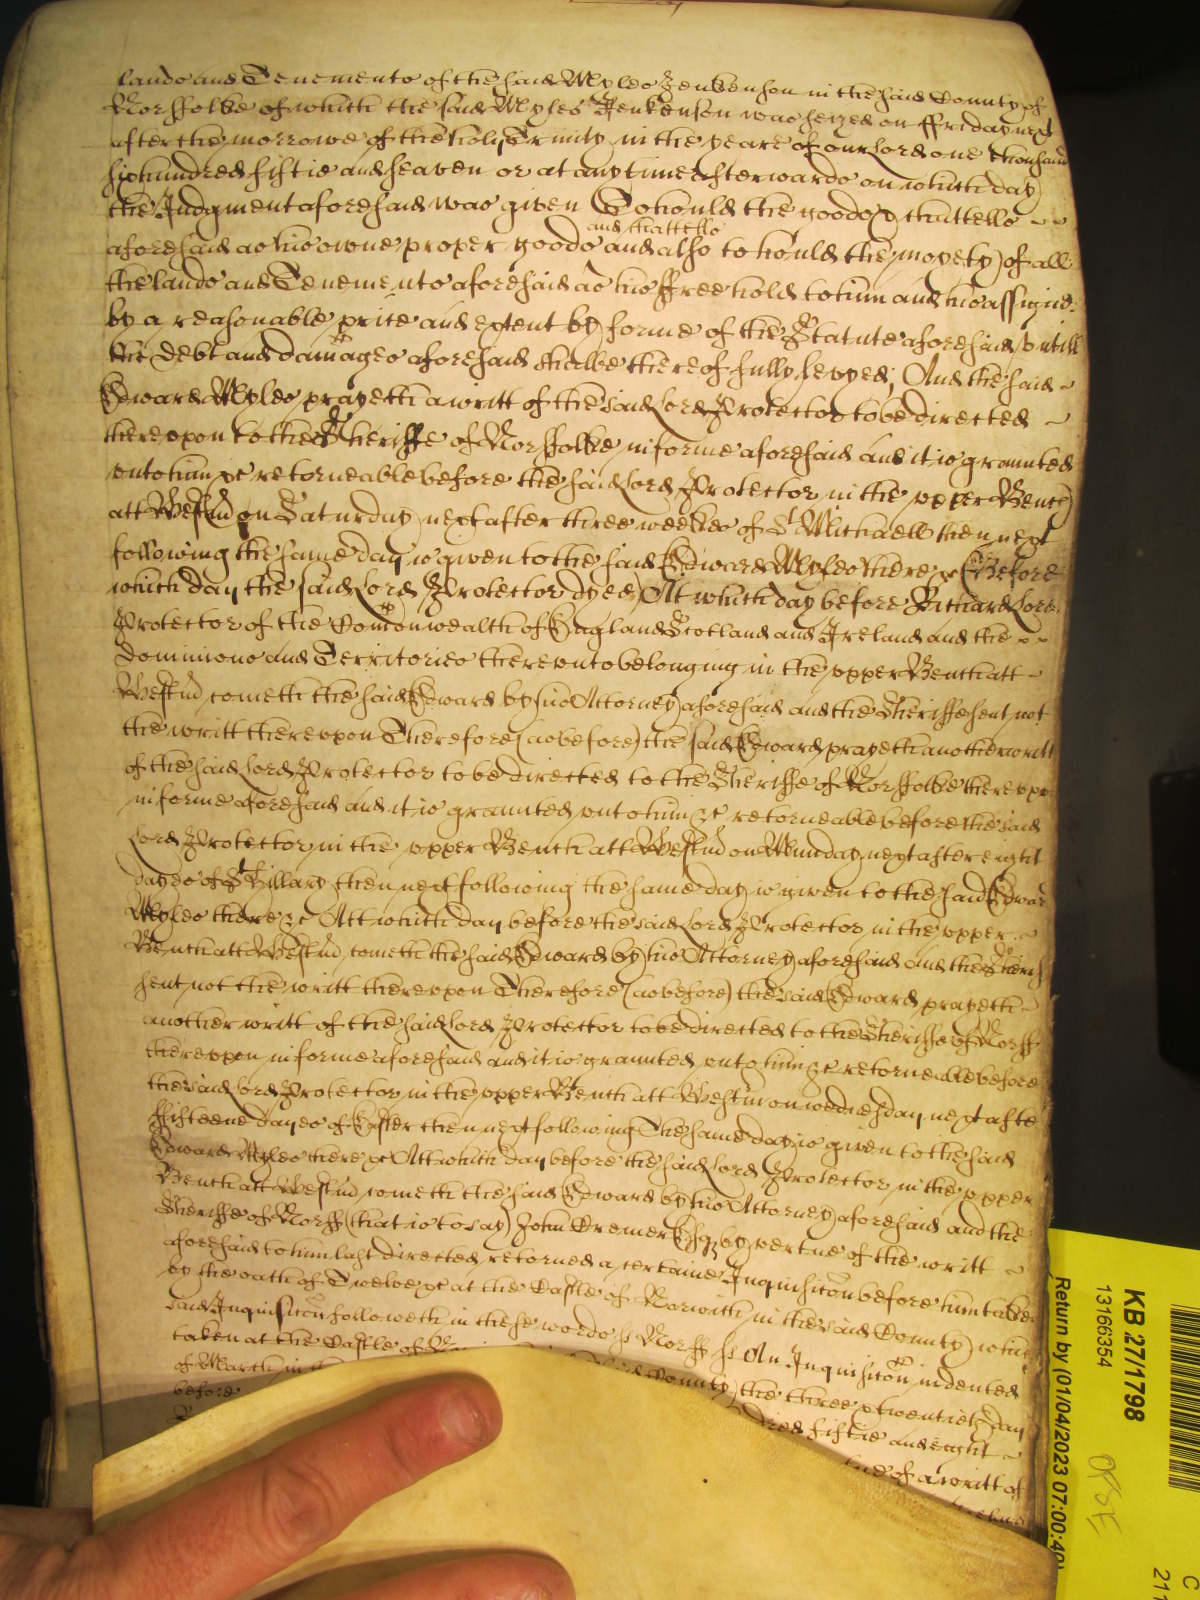 lands and Tenements of the said Myles Jenkenson in the said County of
Norffolke of which the said Myles Jenkenson was seized on ffriday next
after the morrowe of the holy Trinity in the yeare of our Lord one thousand
six hundred fiftie and seaven or at any time afterwards on which day
the Judgment aforesaid was given To hould the goods & chattells
aforesaid as his owne proper goods and chattells and also to hould the moyety of all
the lands and Tenements aforesaid as his ffreehold to him and his assignes
by a reasonable price and extent by forme of the Statute aforesaid untill
the debt and damages aforesaid shalbe thereof fully levyed, And the said
Edward Myles prayeth a writt of the said Lord Protector to be directed
thereupon to the Sheriffe of Norffolke in forme aforesaid and it is graunted
unto him &c retorneable before the said Lord Protector in the upper Bench
att Westm̄ on Saturday next after three weekes of St Michaell then next
following the same day is given to the said Edward Myles there &c Before
which day the said Lord Protector dyed At which day before Richard Lord
Protector of the Com̄onwealth of England Scotland and Ireland and the
dominions and Territories thereunto belonging in the upper Bench att
Westm̄ cometh the said Edward by his Attorney aforesaid and the Sheriffe sent not
the writt thereupon Therefore (as before) the said Edward prayeth another writt
of the said Lord Protector to be directed to the Sheriffe of Norffolke thereupon
in forme aforesaid and it is graunted unto him &c retorneable before the said
Lord Protector in the upper Bench att Westm̄ on Munday next after eight
dayes of St Hillary then next following the same day is given to the said Edward
Myles there &c Att which day before the said Lord Protector in the upper
Bench att Westm̄ cometh the said Edward by his Attorney aforesaid and the Sheriffe
sent not the writt thereupon Therefore (as before) the said Edward prayeth
another writt of the said Lord Protector to be directed to the Sheriffe of Norff
thereupon in forme aforesaid and it is graunted unto him &c retorneable before
the said Lord Protector in the upper Bench att Westm̄ on wednesday next after
ffifteene dayes of Easter then next following The same day is given to the said
Edward Myles there &c Att which day before the said Lord Protector in the upper
Bench att Westm̄ cometh the said Edward by his Attorney aforesaid and the
Sheriffe of Norff (that is to say) John Cremer Esqr by vertue of the writt
aforesaid to him last directed retorned a certaine Inquisicōn before him taken
by the oath of Twelve &c at the Castle of Norwich in the said County which
said Inquisicōn followeth in these words ss Norff ss An Inquisicōn indented
taken at the Castle of County the three & twentieth day
of March in dred fiftie and eight
before of a writt of
KB 27/1798
13166354
Return by (01/04/2023 07:00:40)